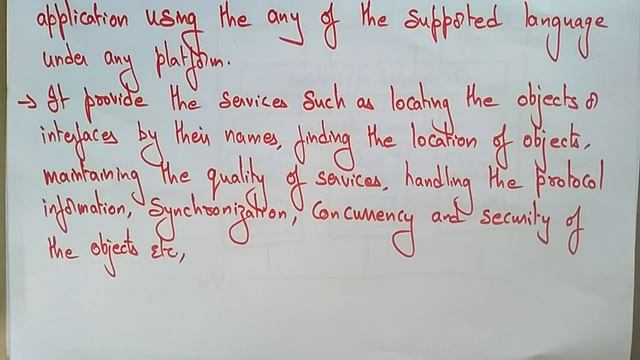 application using the any of the supported language
under any platform.
→ It provide the services such as locating the objects or
interfaces by their names, finding the location of objects,
maintaining the quality of services, handling the protocol
information, Synchronization, Concurrency and security of
the objects etc,